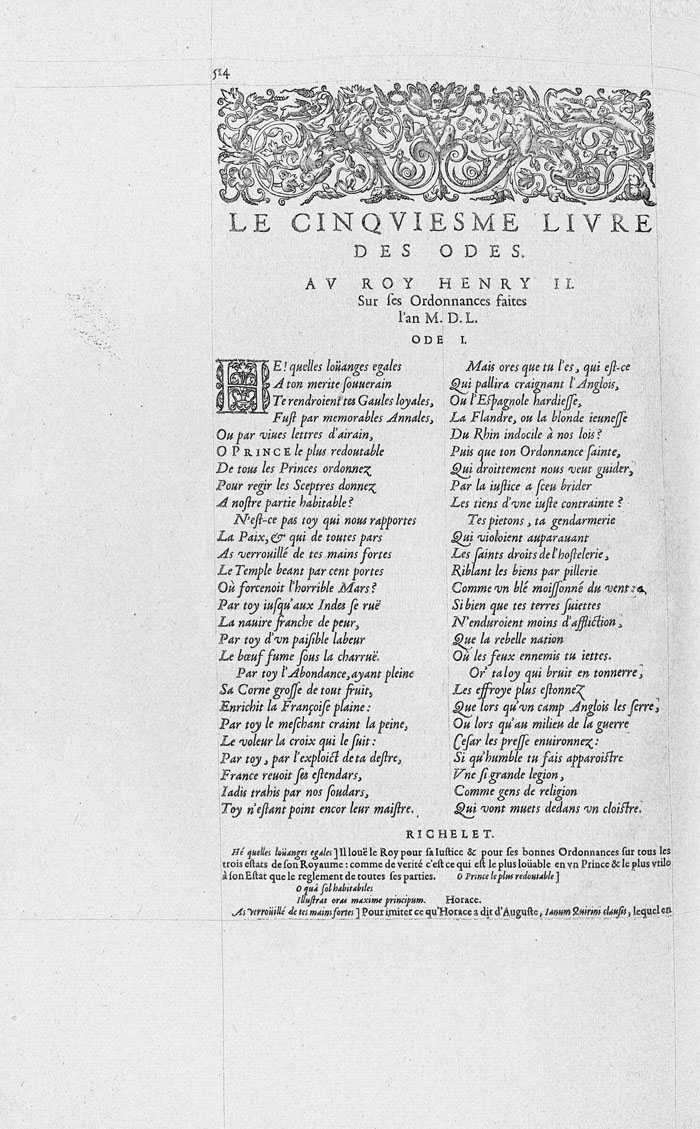 514
LE CINQVIESME LIVRE
DES ODES.
AV ROY HENRY II.
Sur ſes Ordonnances faites
l'an M. D. L.
ODE I.
HE! quelles loüanges egales
A ton merite ſouuerain
Te rendroient tes Gaules loyales,
Fuſt par memorables Annales,
Ou par viues lettres d'airain,
O PRINCE le plus redoutable
De tous les Princes ordonnez
Pour regir les Sceptres donnez
A noſtre partie habitable?
N'eſt-ce pas toy qui nous rapportes
La Paix, & qui de toutes pars
As verrouillé de tes mains fortes
Le Temple beant par cent portes
Où forcenoit l'horrible Mars?
Par toy iuſqu'aux Indes ſe ruë
La nauire franche de peur,
Par toy d'vn paiſible labeur
Le bœuf fume ſous la charruë.
Par toy l'Abondance, ayant pleine
Sa Corne groſſe de tout fruit,
Enrichit la Françoiſe plaine:
Par toy le meſchant craint la peine,
Le voleur la croix qui le ſuit:
Par toy, par l'exploict de ta deſtre,
France reuoit ſes eſtendars,
Iadis trahis par nos ſoudars,
Toy n'eſtant point encor leur maiſtre.
Mais ores que tu l'es, qui eſt-ce
Qui pallira craignant l'Anglois,
Ou l'Eſpagnole hardieſſe,
La Flandre, ou la blonde ieuneſſe
Du Rhin indocile à nos lois?
Puis que ton Ordonnance ſainte,
Qui droittement nous veut guider,
Par la iuſtice a ſceu brider
Les tiens d'vne iuſte contrainte?
Tes pietons, ta gendarmerie
Qui violoient auparauant
Les ſaints droits de l'hoſtelerie,
Riblant les biens par pillerie
Comme vn blé moiſſonné du vent:
Si bien que tes terres ſuiettes
N'enduroient moins d'affliction,
Que la rebelle nation
Où les feux ennemis tu iettes.
Or' ta loy qui bruit en tonnerre,
Les effroye plus eſtonnez
Que lors qu'vn camp Anglois les ſerre,
Ou lors qu'au milieu de la guerre
Ceſar les preſſe enuironnez:
Si qu'humble tu fais apparoiſtre
Vne ſi grande legion,
Comme gens de religion
Qui vont muets dedans vn cloiſtre.
RICHELET.
Hé quelles loüanges egales ] Il louë le Roy pour ſa Iuſtice & pour ſes bonnes Ordonnances ſur tous les
trois eſtats de ſon Royaume: comme de verité c'eſt ce qui eſt le plus loüable en vn Prince & le plus vtile
à ſon Eſtat que le reglement de toutes ſes parties. O Prince le plus redoutable ]
O quà ſol habitabiles
Illuſtrat oras maxime principum. Horace.
As verrouillé de tes mains fortes ] Pour imiter ce qu'Horace a dit d'Auguſte, Ianum Quirini clauſit, lequel en